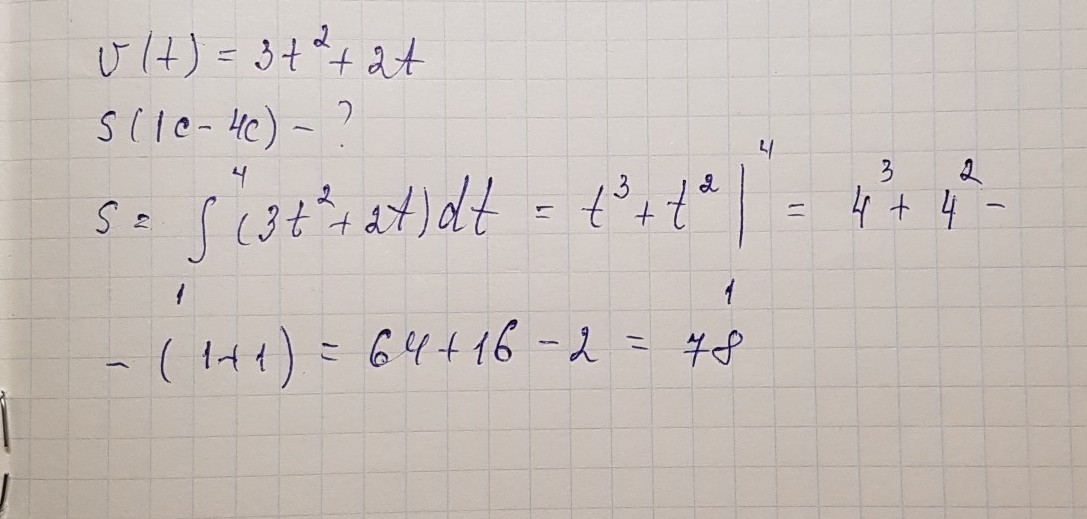 v(t) = 3t² + 2t
S(1c - 4c) - ?
S = ∫₁⁴ (3t² + 2t)dt = t³ + t² |₁⁴ = 4³ + 4² -
- (1+1) = 64 + 16 - 2 = 78